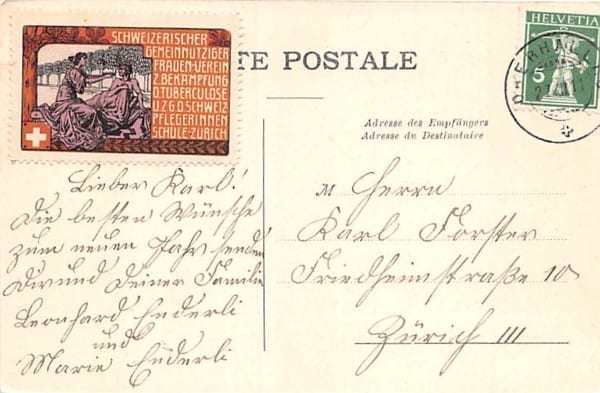 SCHWEIZERISCHER
GEMEINNÜTZIGER
FRAUEN-VEREIN
Z.BEKÄMPFUNG
D.TUBERCULOSE
U.Z.G.D.SCHWEIZ.
PFLEGERINNEN
SCHULE-ZÜRICH
TE POSTALE
HELVETIA
5
Adresse des Empfängers
Adresse du Destinataire
Lieber Karl!
Die besten Wünsche
zum neuen Jahr senden
Dir und Deiner Familie
Leonhard Enderli
und
Marie Enderli
M Herrn
Karl Forster
Friedheimstraße 10
Zürich III